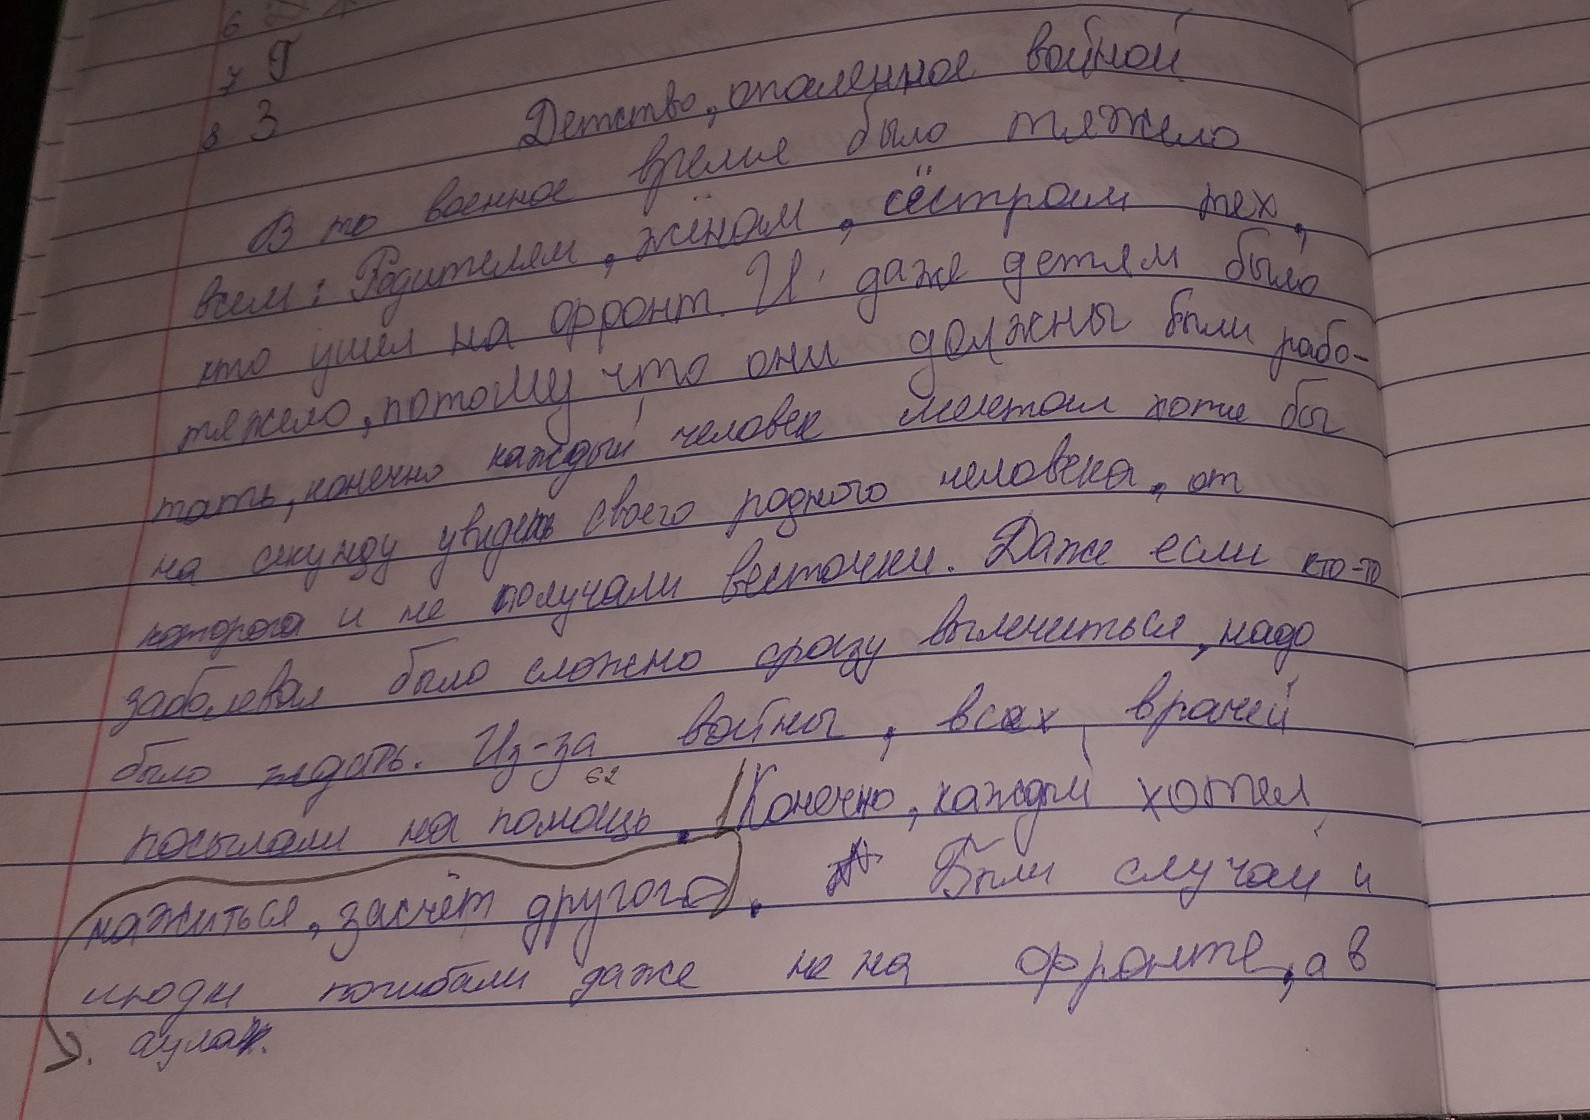 6
7 9
8 3
Детство, опаленное войной
В то военное время было тяжело
всем: Родителям, жёнам, сёстрам тех,
кто ушёл на фронт. И даже детям было
тяжело, потому что они должны были рабо-
тать, конечно каждый человек мечтал хотя бы
на секунду увидеть своего родного человека, от
которого и не получали весточки. Даже если кто-то
заболевал было сложно сразу вылечиться, надо
было ждать. Из-за войны, всех врачей
62
посылали на помощь. Конечно, каждый хотел
нажиться, засчёт другого. Были случаи и
люди погибали даже не на фронте, а в
аулах.